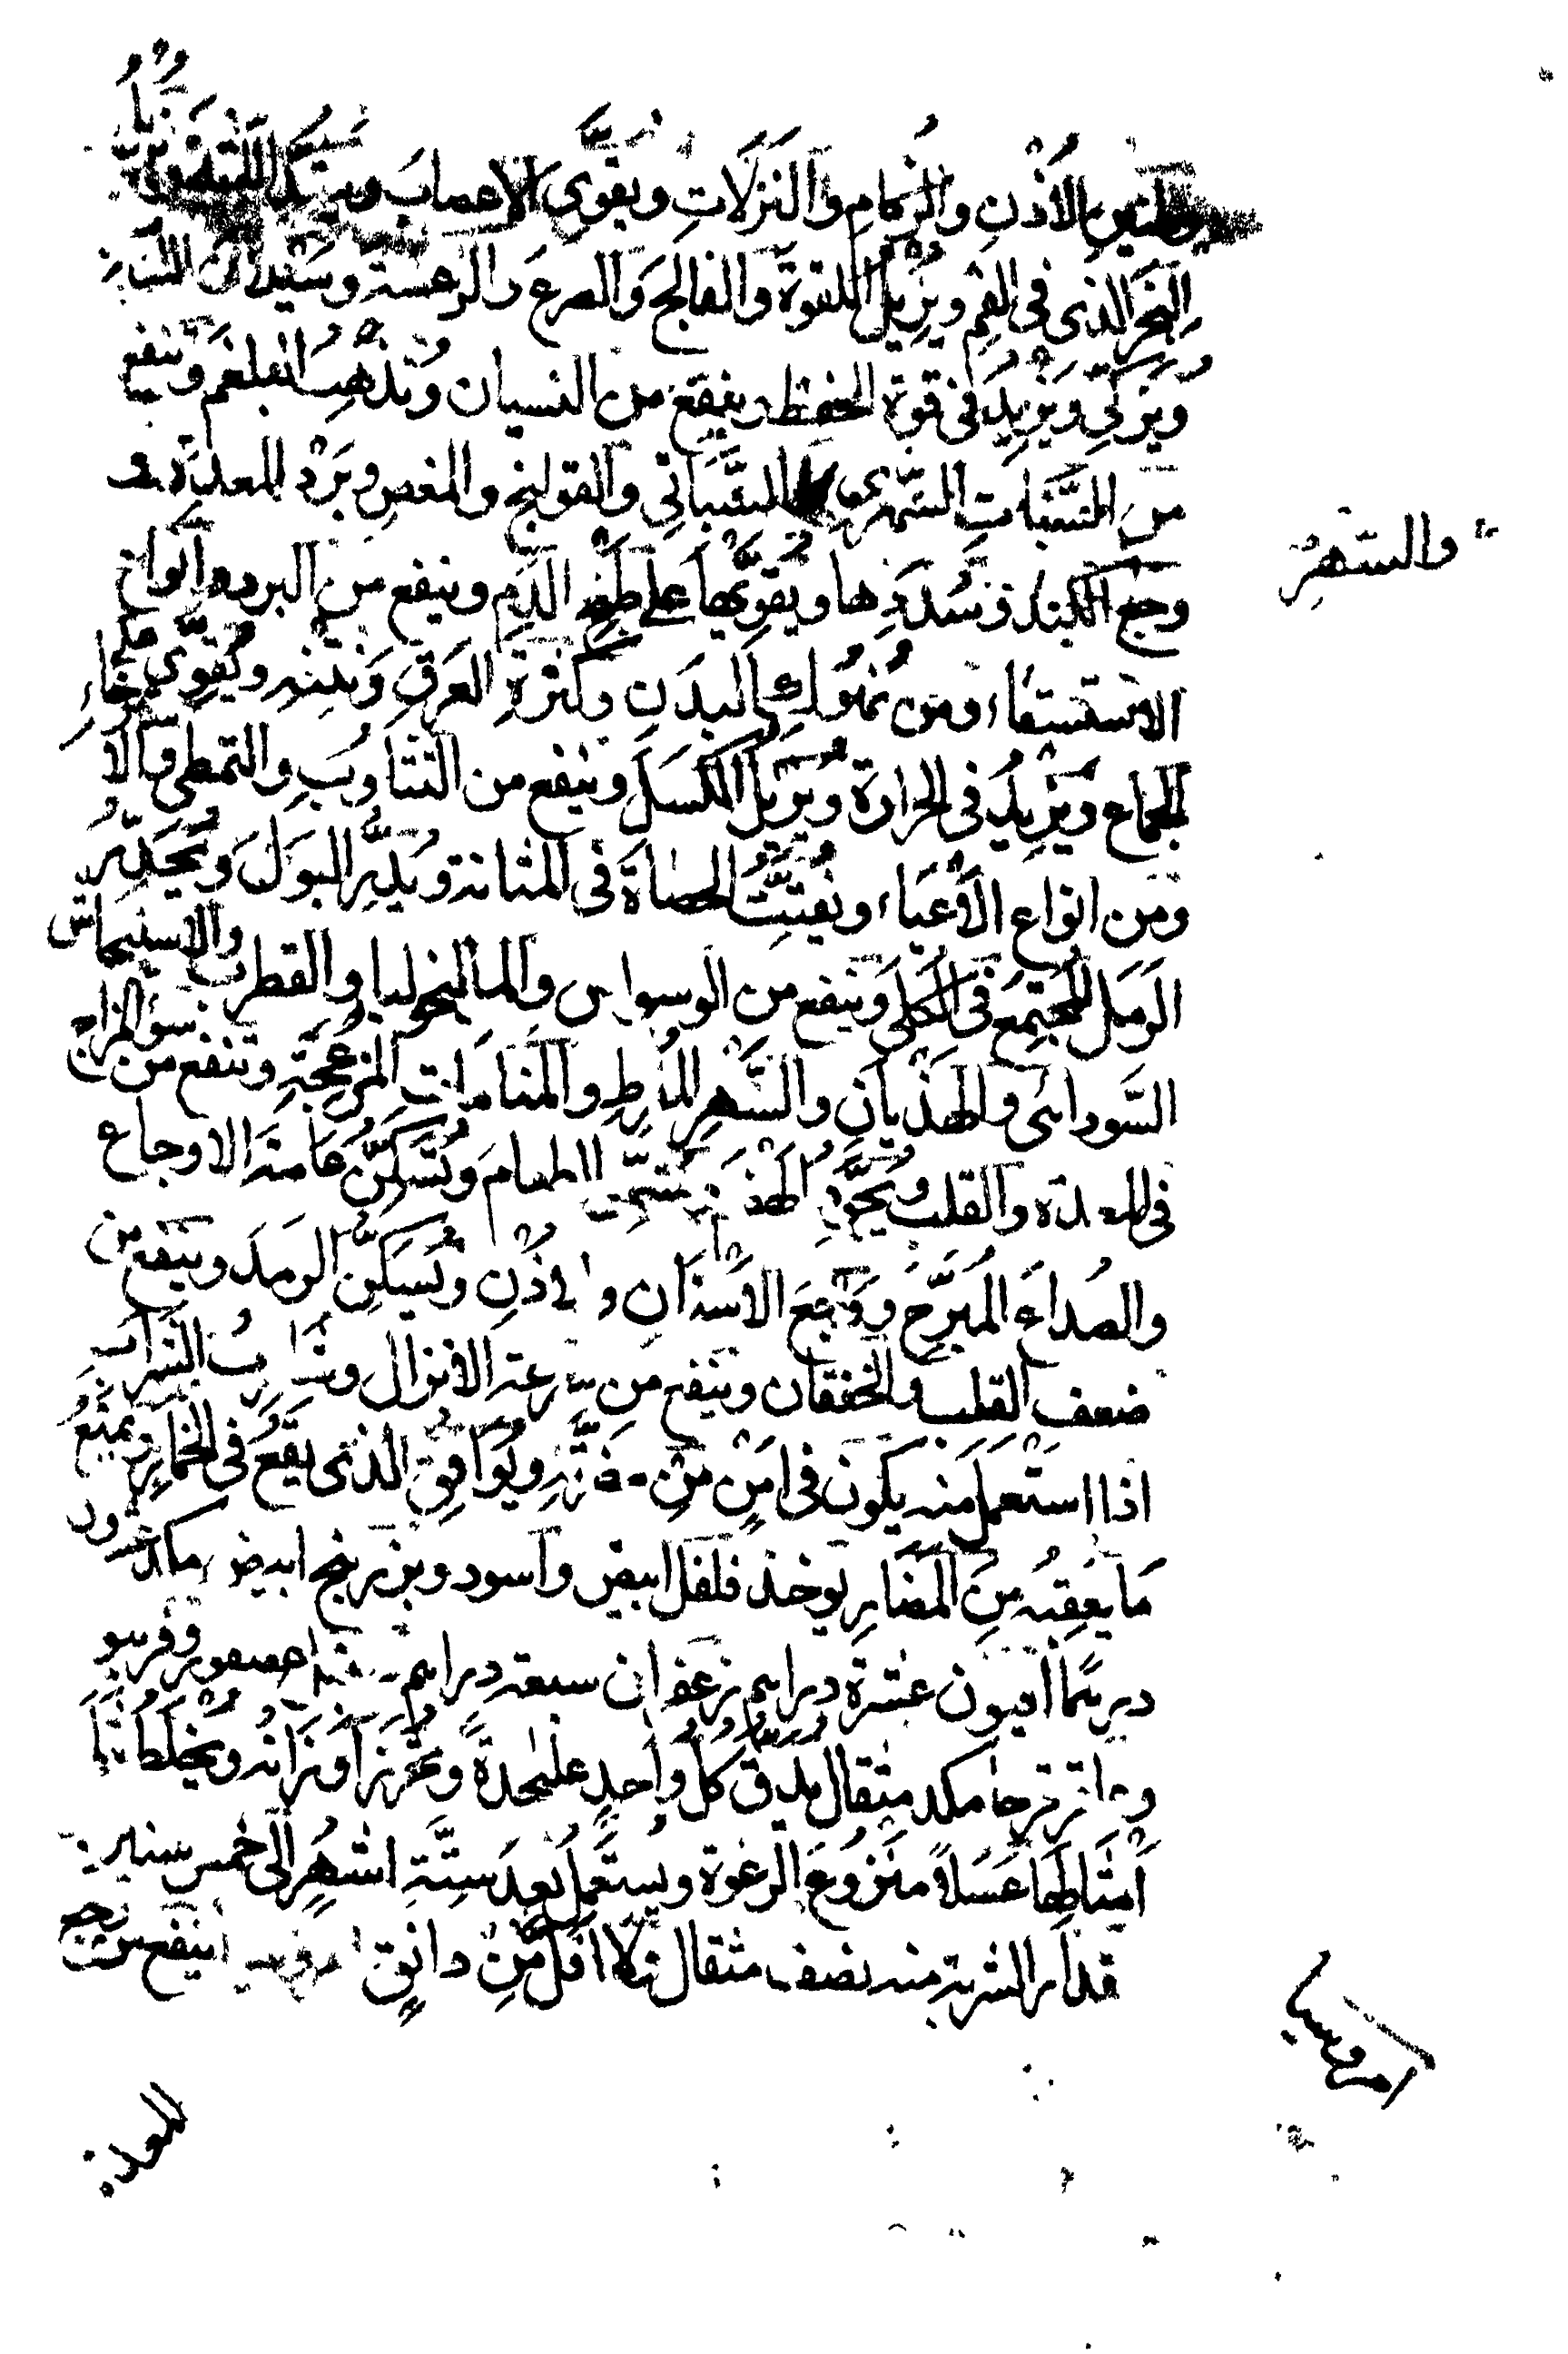 وطنين الأُذن والزكام والنَّزلاتِ ويقوّى الاعصابَ
البَخَرَ الذى فى الفَمِ ويُزيلُ اللقوةَ والفالجَ والصرعَ والرعشة وسَيَلانَ
ويُزكّى ويَزيدُ فى قوة الحفظ وينفع من النسيان ويُذهِبُ البلغمَ وينفع
من السُّبات السَّهرى السُّباتى والقولنج والمغص وبَرْد المعدة و
والسَّهَر
وجع الكبد وسُدَدِها ويُقوِّيها على طبخ الدَّمِ وينفع من البرد وأنواع
الاستسقاء ومن نُهُوك البدَنِ وكثرة العَرَقِ ونَتنِه ويُقوّى على
الجماع ويَزيدُ فى الحرارة ويُزيل الكَسَلَ وينفع من التثاوُبِ والتمطى
ومن انواع الأعياء ويُفتِّتُ الحصاةَ فى المثانة ويُدِرُّ البولَ ويُحَدِّر
الرَملَ المجتمِعَ فى الكلى وينفع من الوسواس والماليخوليا والقطرب
السَّوداى والهَذَيانِ والسَّهَرِ المفرط والمنامات المُزعجةِ وتنفع من سوَالمزاج
فى المعدة والقلب ويُجَوِّد الهضم الطعام ويُسَكِّن عامة الاوجاع
والصُداعَ المُبَرِّحَ ووَجعَ الاسنانِ والاذُنِ ويُسَكِّنُ الرمدَ وينفع من
ضعف القلب والخفقان وينفع من سرعة الانزال وشارب الشراب
اذا استعمل منه يكون فى امنٍ من مضرّته ويُوَافِق الذى يقع فى الخمار ويمنَعُ
مَا يعقِبُه مِنَ المضَارِ يوخذ فلفل ابيض وأسود وبزر بنج ابيض مكد عشرون
درهمًا افيون عشرة دراهم زعفران سبعة دراهم
وعاقرقرحا مكد مثقال يدق كلُّ واحدٍ علىحدةً وتحرَّر أوزانُه ويُخلَط
أمثالِها عَسَلاً منزوعَ الرغوة ويُستَعمل بعدَ ستّةِ اشهُرٍ الى خمس سنين
قدار الشربة منه نصف مثقال اقلَّ من دانِقٍ ينفع من
امروسيا